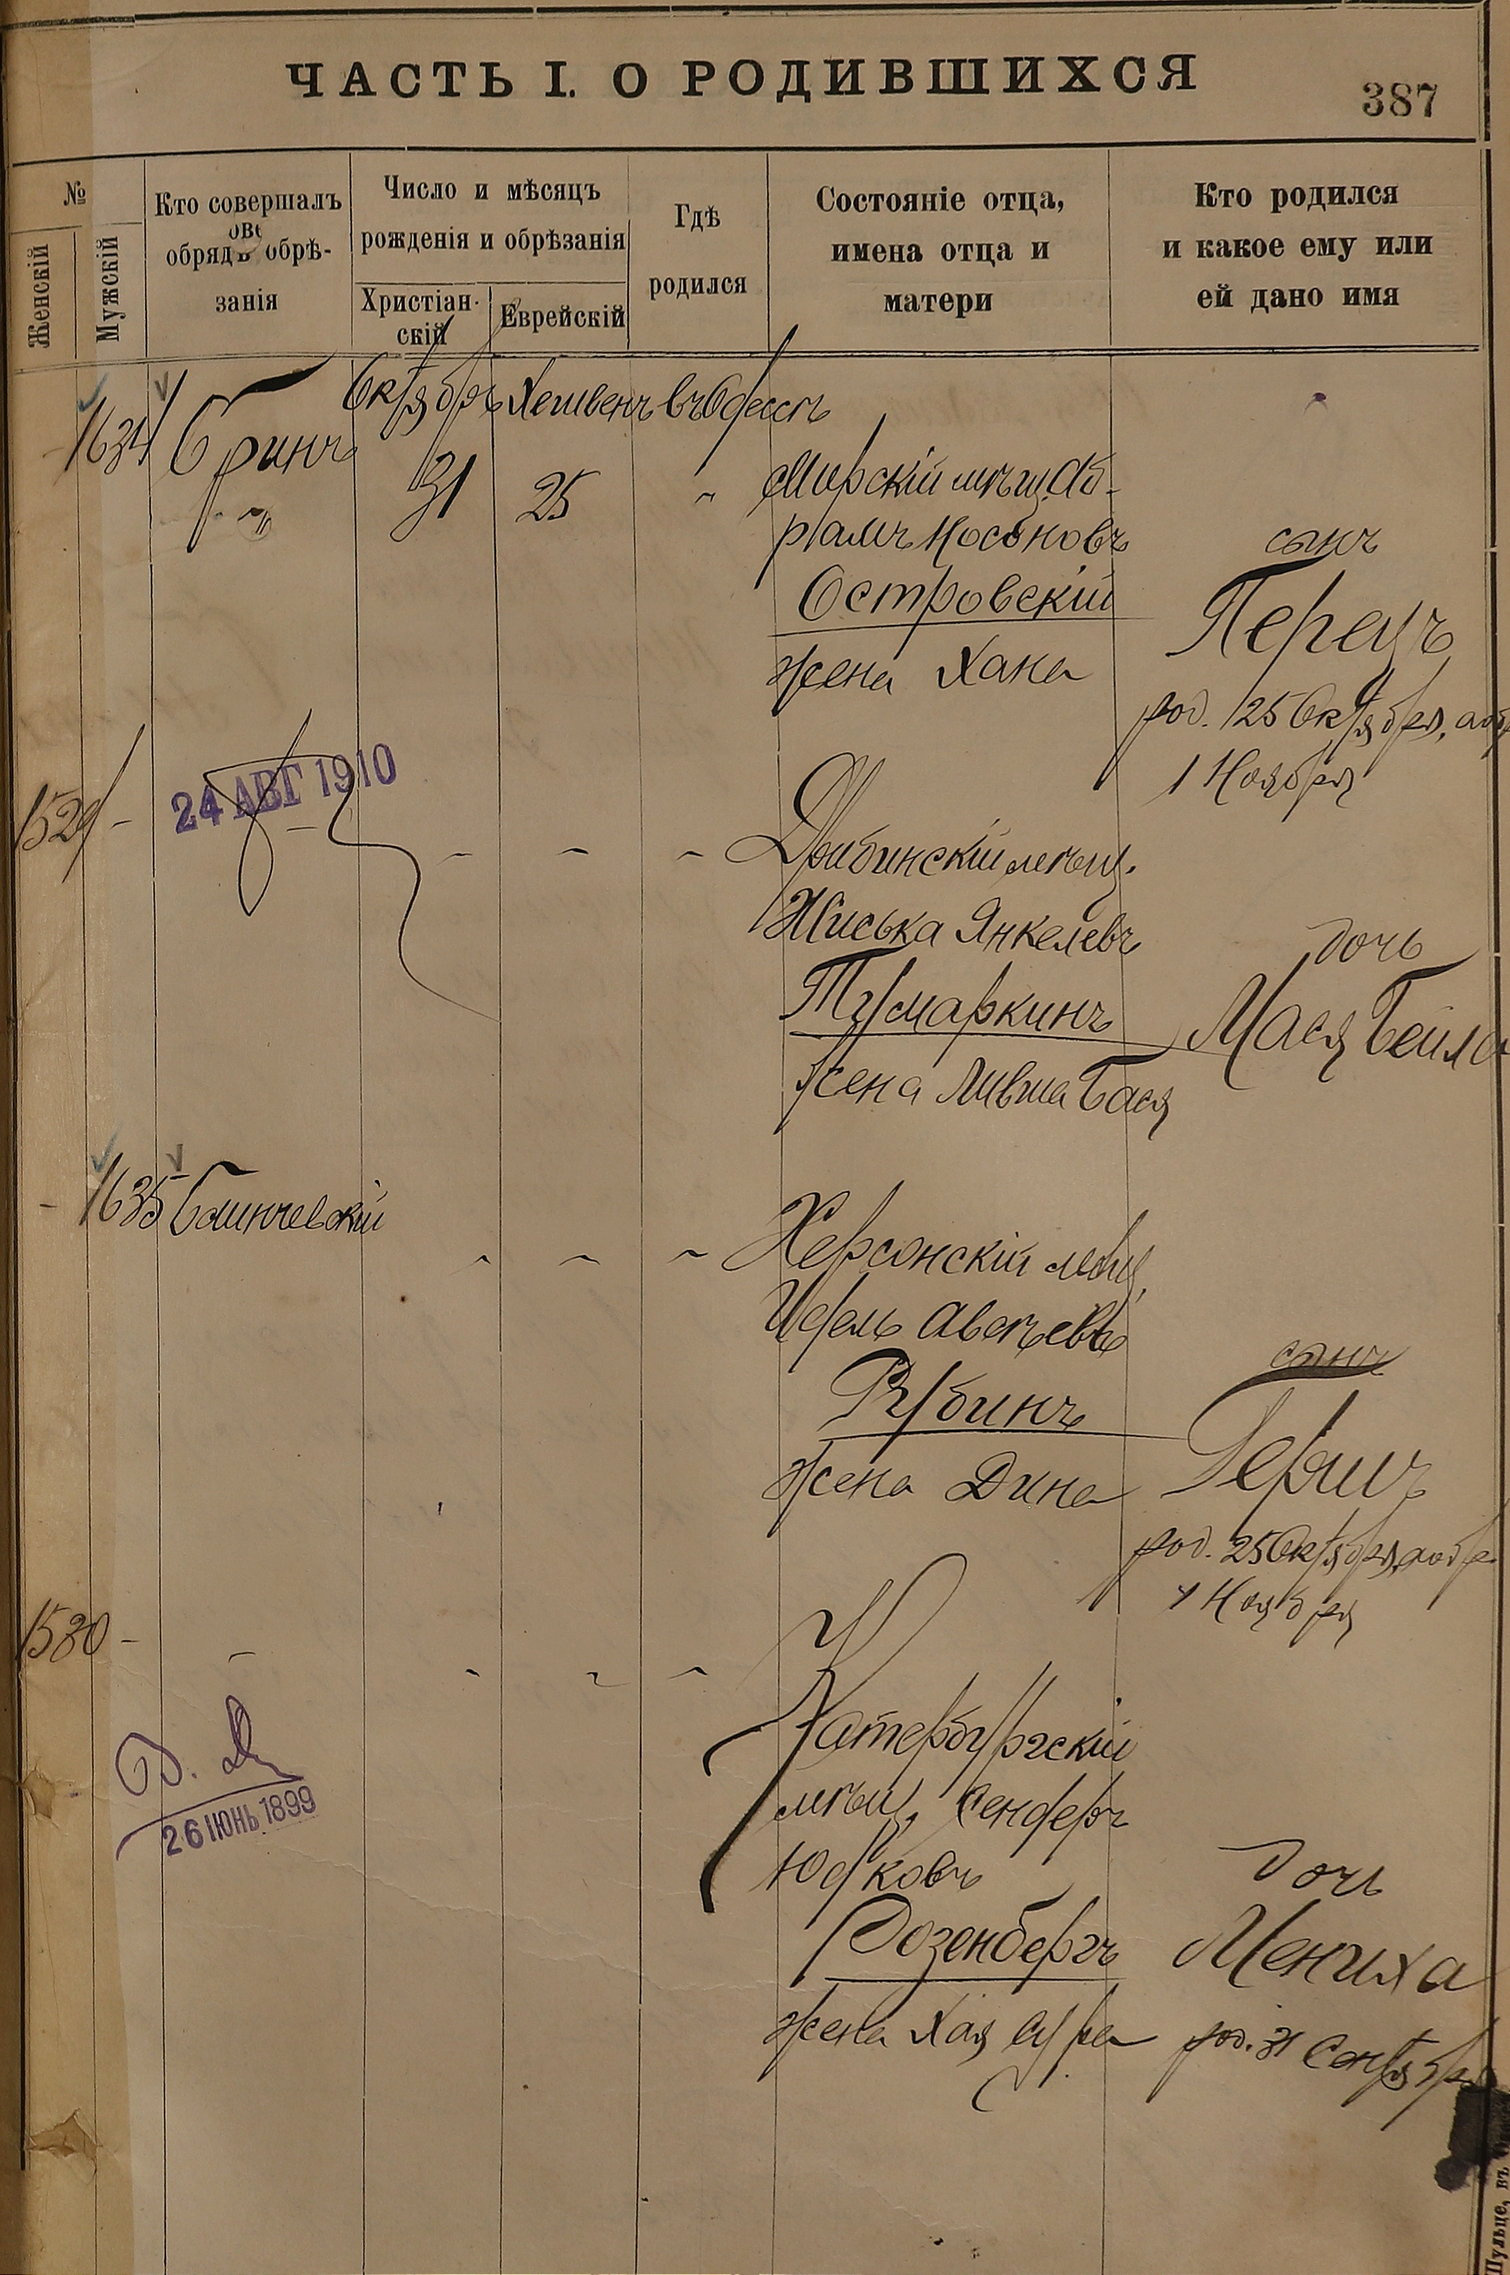 ЧАСТЬ I. О РОДИВШИХСЯ
387
№
Женскій
Мужскій
Кто совершалъ
обрядъ обрѣ-
занія
Число и мѣсяцъ
рожденія и обрѣзанія
Христіан-
скій
Еврейскій
Гдѣ
родился
Состояніе отца,
имена отца и
матери
Кто родился
и какое ему или
ей дано имя
Октябрь Хешвенъ въ Одессѣ
1634 Гринъ 31 25 "
Мирскій мѣщ. Аб-
рамъ Носоновъ
Островскій
жена Хана
сынъ
Перецъ
род. 25 Октября, а обр
1 Ноября
1529 -
24 АВГ 1910
Дрибинскій мѣщ.
Хиська Янкелевъ
Тумаркинъ
жена Ливша Бася
дочь
Мася Бейла
- 1635
Херсонскій мѣщ.
Иделъ Авсѣевъ
Рубинъ
жена Дина
сынъ
Гершъ
род. 25 Октября, а обр.
1 Ноября
1530 -
26 ІЮНЬ 1899
Катербургскій
мѣщ. Сендеръ
Юдковъ
Розенбергъ
жена Хая Сура
дочь
Мениха
род. 21 Сентябр